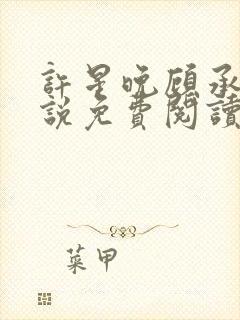 許星晚顧承
說免費閱讀
菜甲